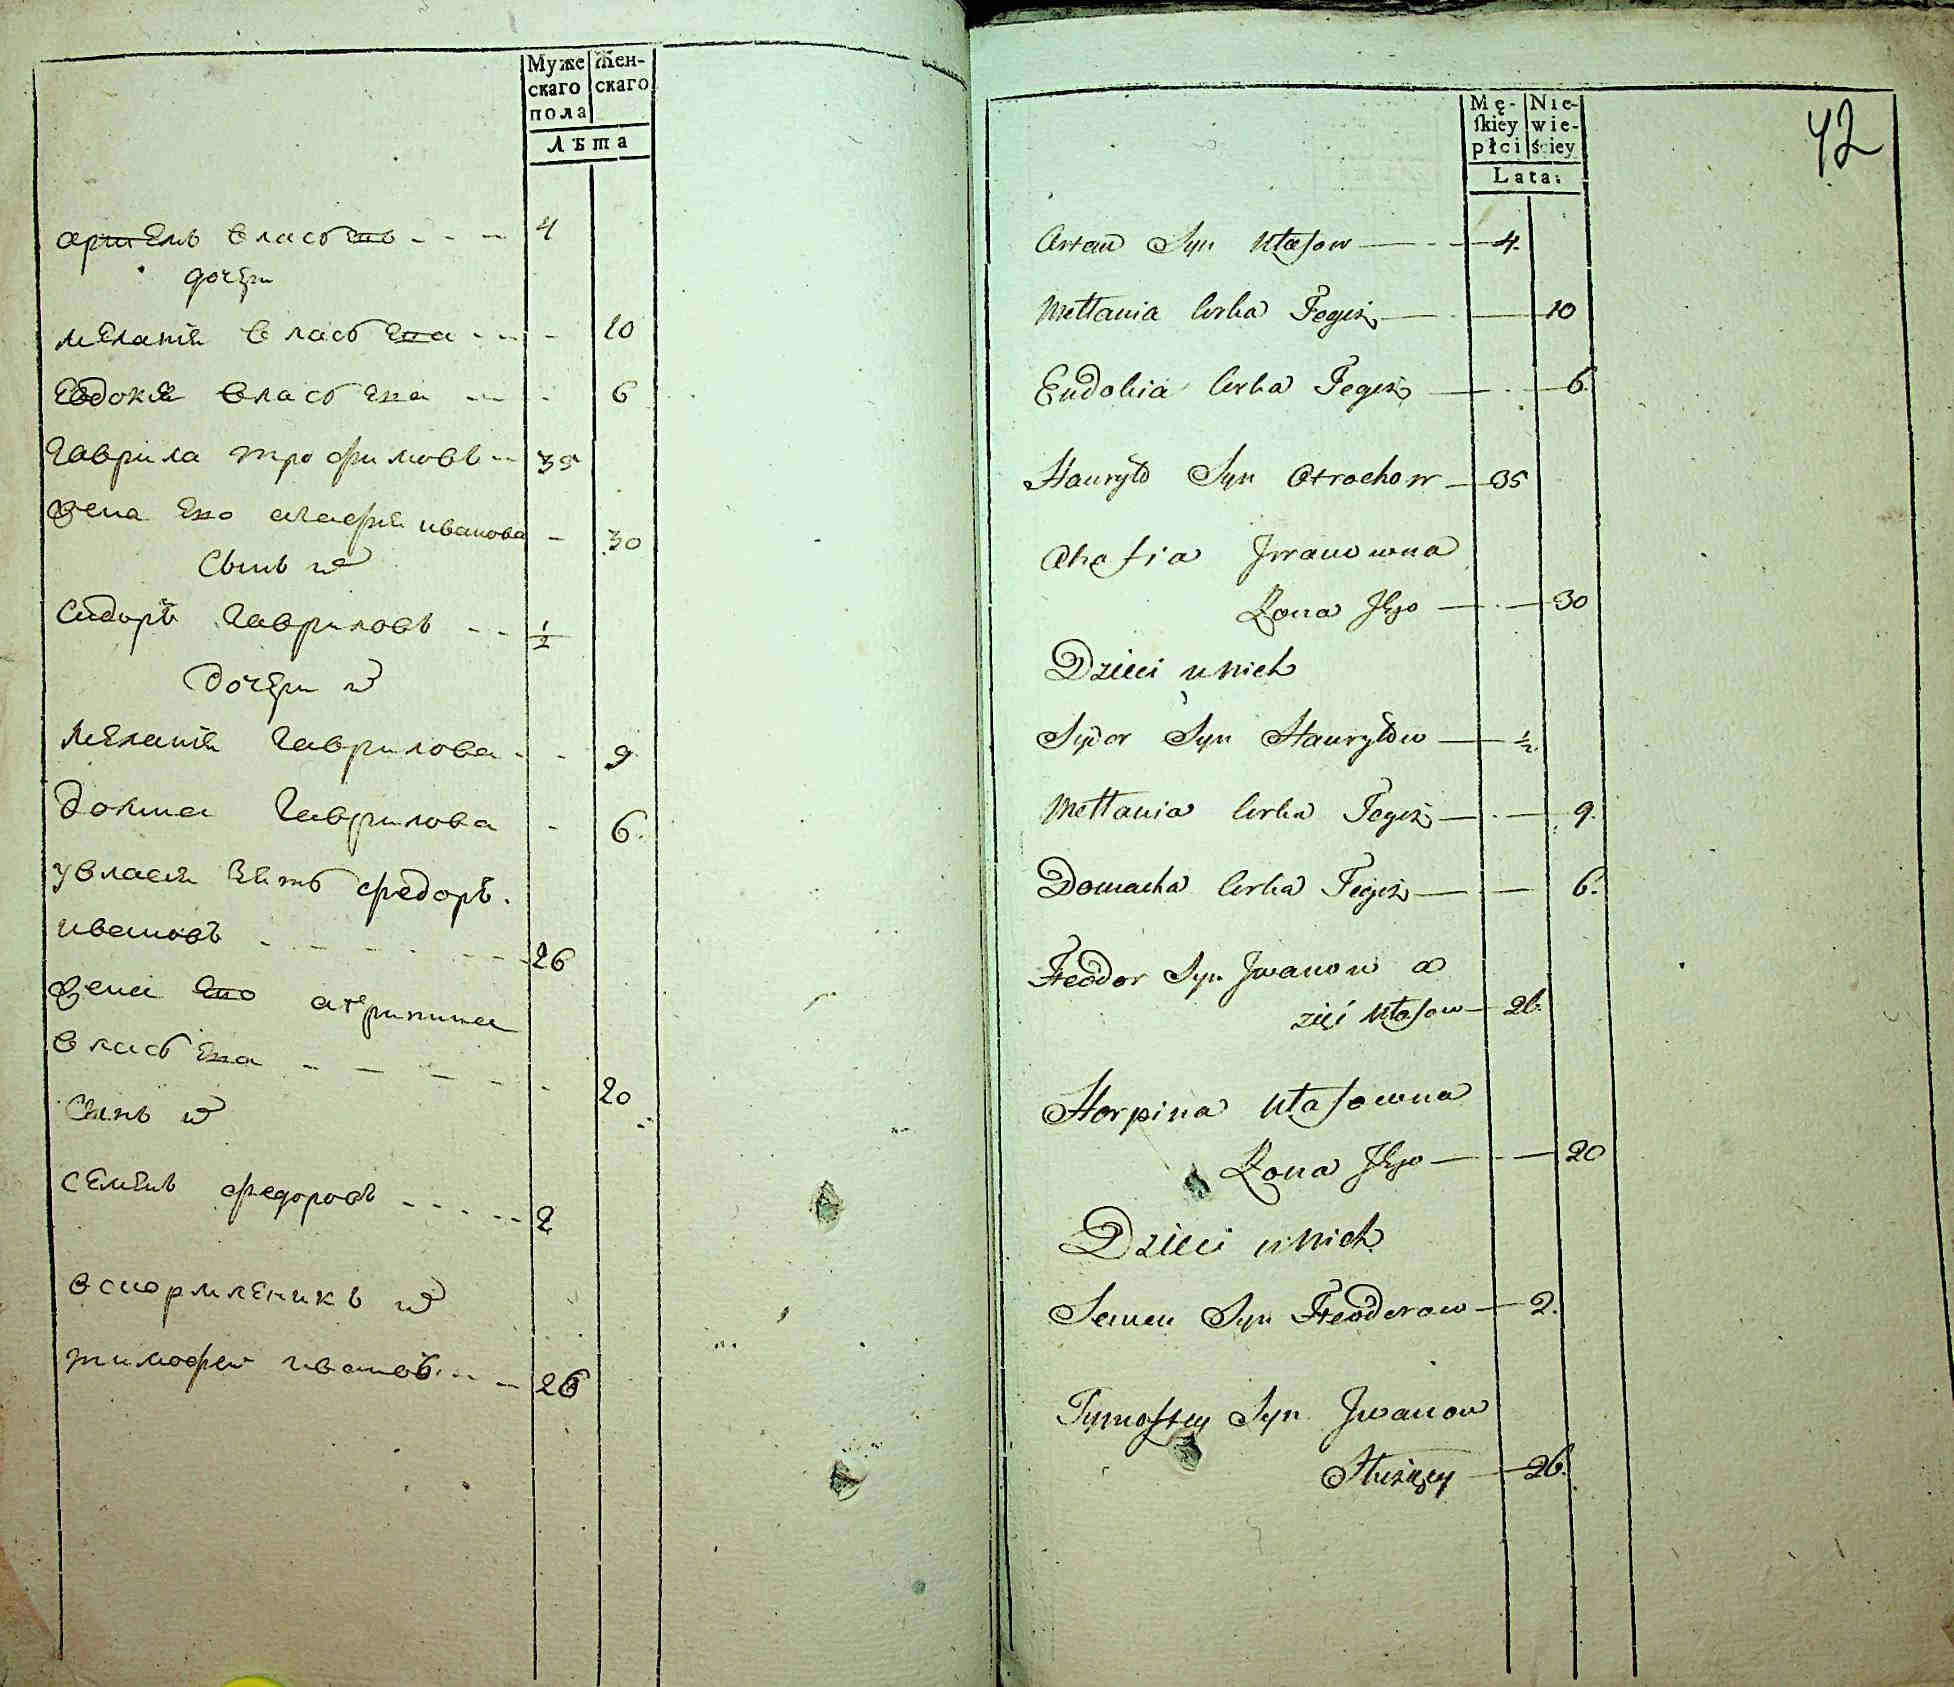 Муже
скаго
пола
Жен-
скаго
Лѣта
власьевъ - - - 4
дочери
мелания власьева - - - 10
Евдокия власьева - - - 6
Гаврила трофимовъ - - 35
жена ево агафия иванова - 30
Сынъ их
Сидоръ Гавриловъ - - ½
Дочери их
Мелания Гаврилова - - 9
Домна Гаврилова - 6.
у власа зять федоръ
ивановъ - - - - - 26
жена ево агрипина
власьева - - - - - 20
Сынъ их
семенъ федоровъ - - - - - 2
вскормленикъ их
тимофеи ивановъ - - - 26
42
Mę-
ſkiey
płci
Nie-
wie-
ściey
Lata:
Syn Własow — 4.
Mełłania Corka Tegoż — 10
Eudokia Corka Tegoż — 6.
Hauryło Syn Atrachow — 35
Ahafia Jwanowna
Żona Jego — 30
Dzieci u nich
Sydor Syn Hauryłow — ½.
Mełłania Corka Tegoż — 9.
Domacha Corka Tegoż — 6.
Fteodor Syn Jwanow a
zięć Własow — 26.
Horpina Własowna
Żona Jego — 20
Dzieci u nich
Semen Syn Fteodorow — 2.
Tymoftey Syn Jwanow
Służący — 26.